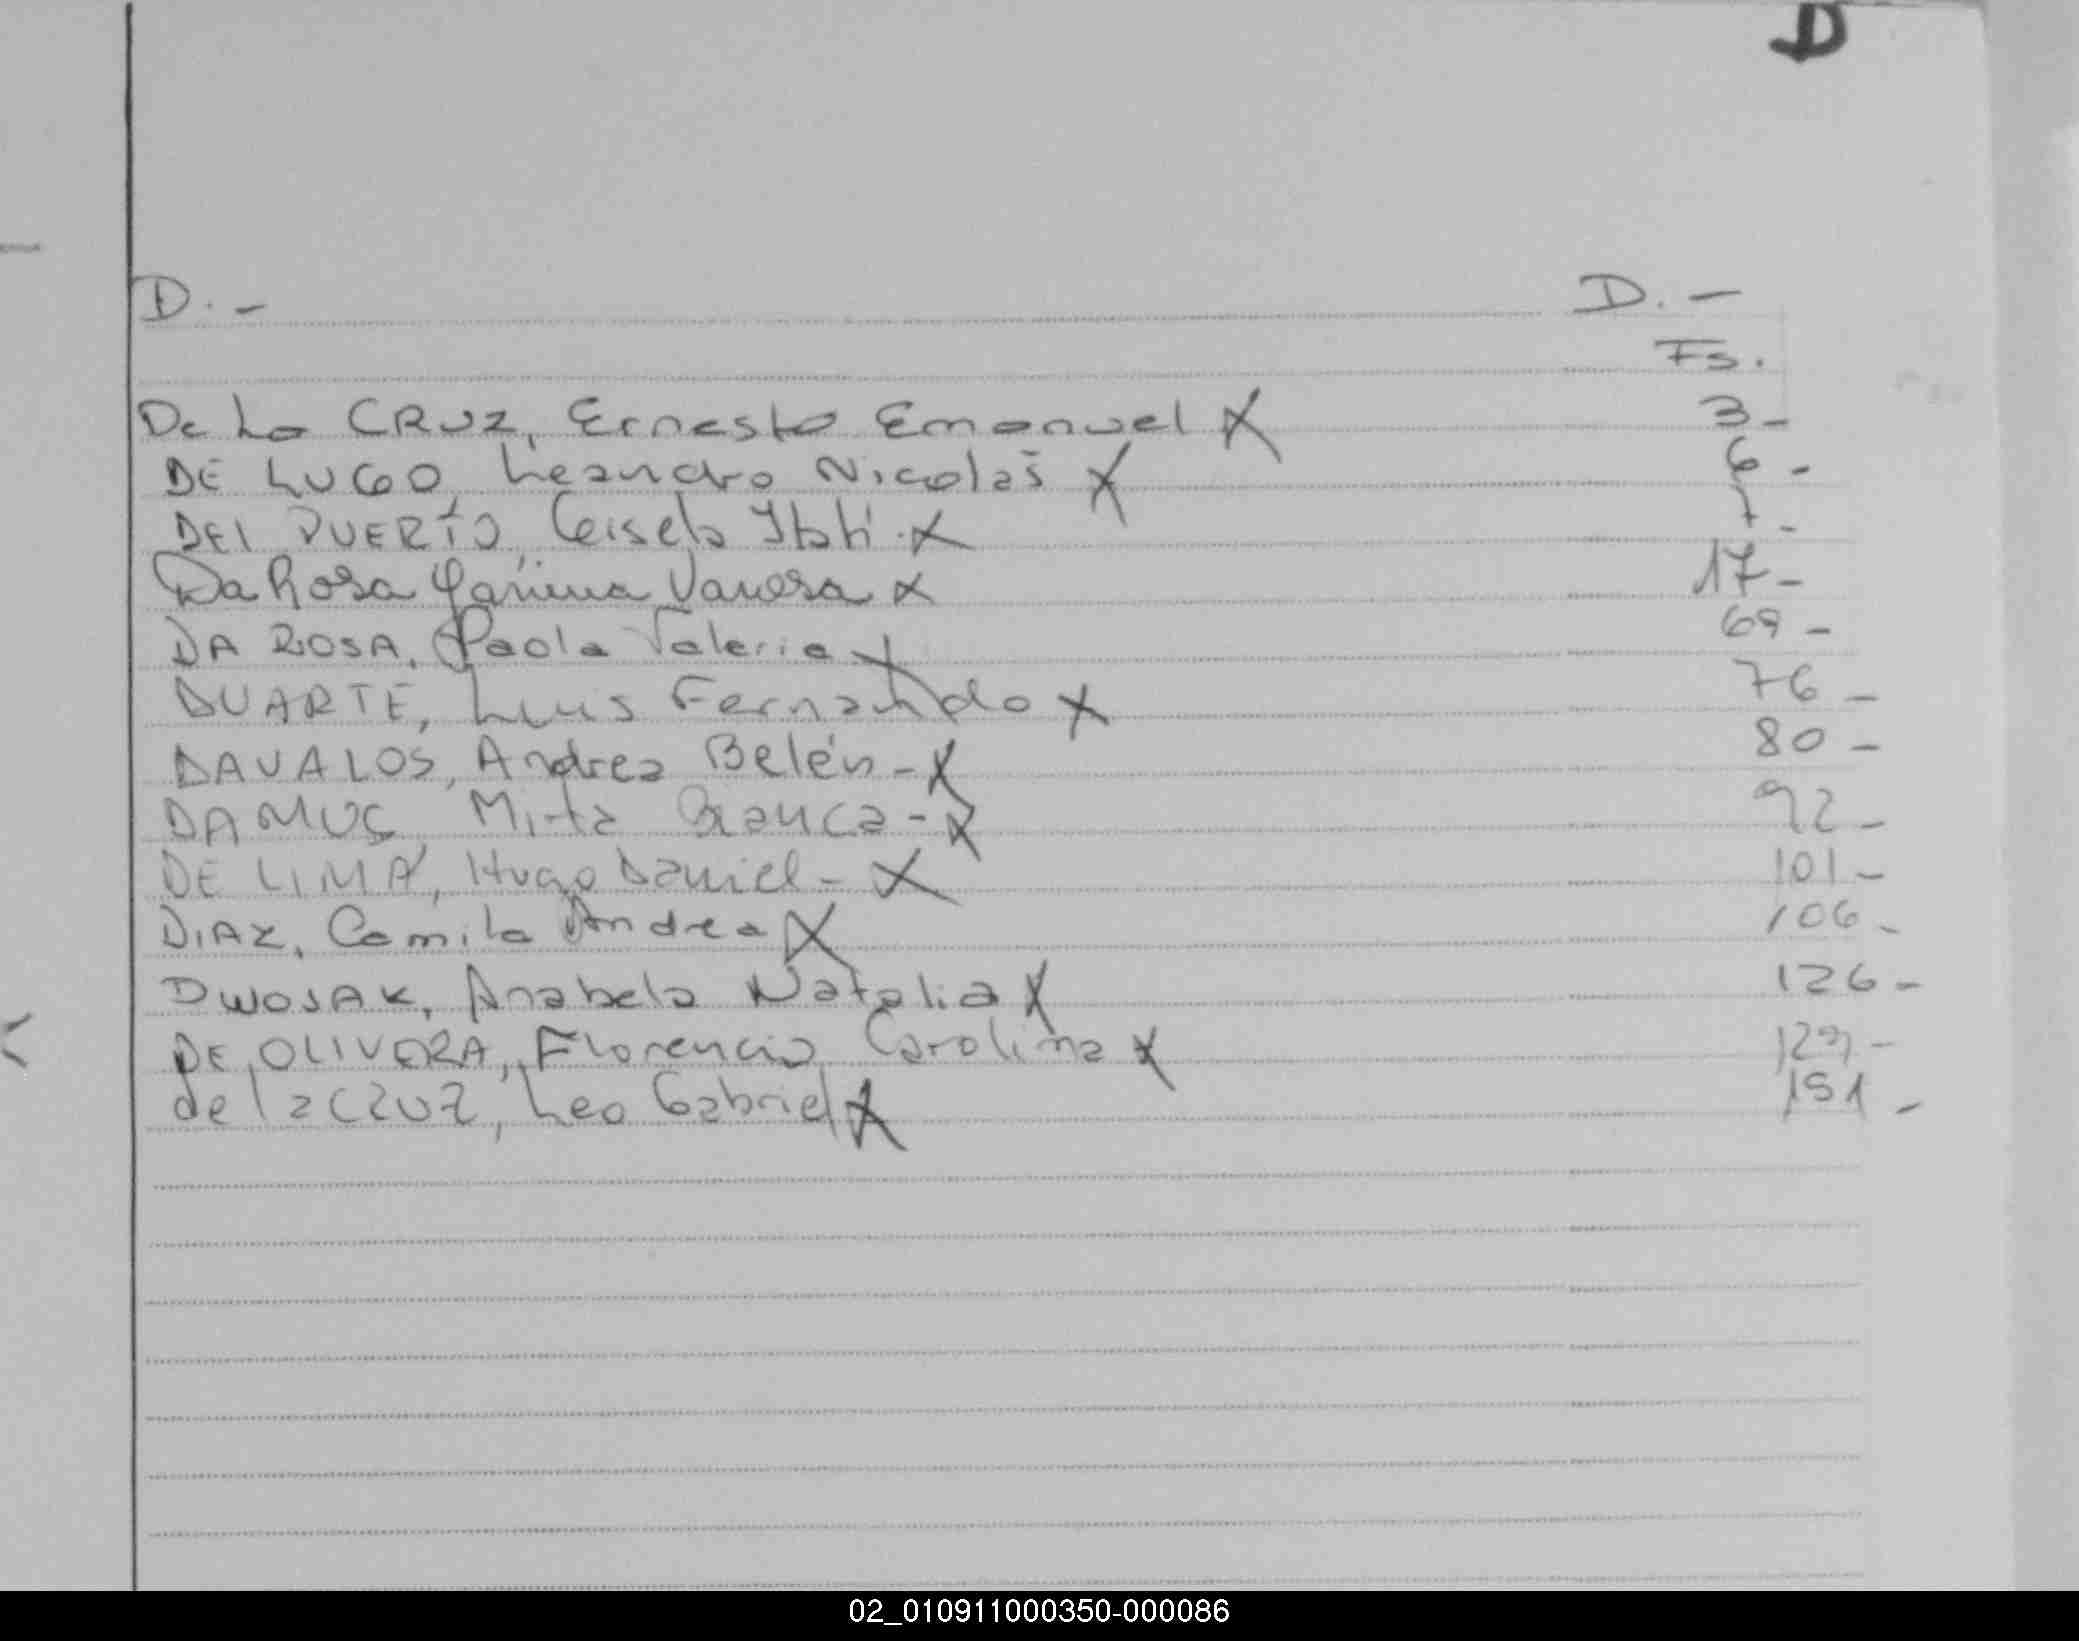 D
D.- D.-
Fs.
De La CRUZ, Ernesto Emanuel X 3-
DE LUGO, Leandro Nicolás X 6-
DEL PUERTO, Geisela Itatí.X 7-
Da Rosa Yanina Vanesa X 17-
DA ROSA, Paola Valeria X 69-
DUARTE, Luis Fernando X 76-
DAVALOS, Andrea Belén-X 80-
DAMUS, Mirta Bianca-X 92-
DE LIMA, Hugo Daniel-X 101-
DIAZ, Camila Andrea X 106-
DWOJAK, Anabela Natalia X 126-
DE OLIVERA, Florencia Carolina X 129-
de la CRUZ, Leo Gabriel X 151-
02_010911000350-000086